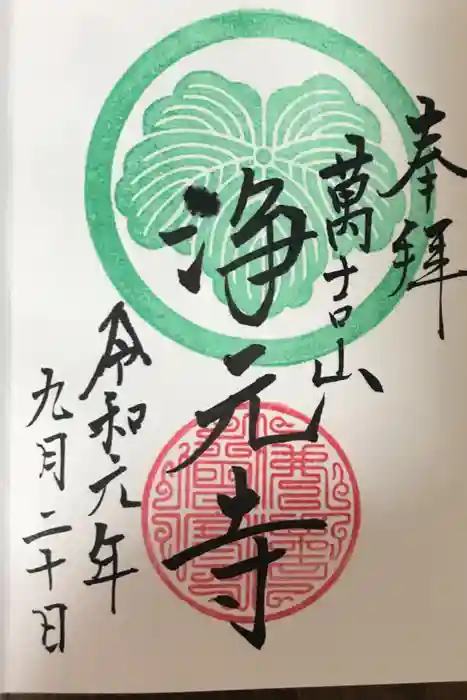 奉拝
萬吉山
浄元寺
令和元年
九月二十日